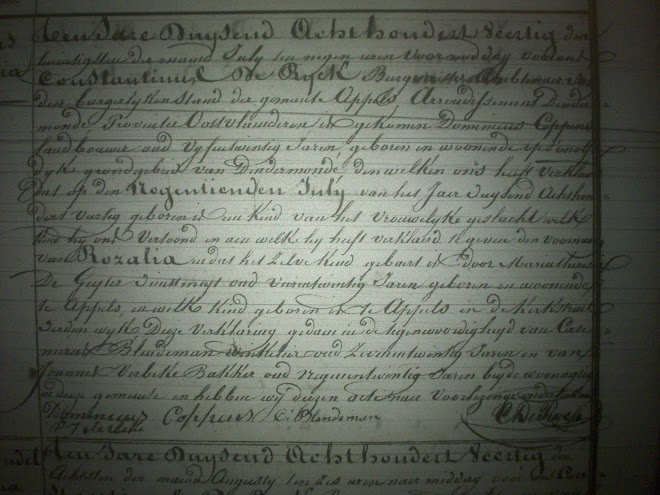 Ten Jare Duysend Achthondert Veertig den
twintigsten der maend July ten negen uren voormiddag voor ons
Constantinus De Ryck Burgemeester Ambtenaer van
den burgelyken stand der gemeente Appels Arrondissement Dender=
monde Provintie Oostvlaenderen is gekomen Dominicus Coppens
landbouwer oud vyfentwintig Jaren geboren en woonende op
dyk grondgebied van Dendermonde den welken ons heeft verklaert
dat op den Negentienden July van het Jaer duysend Achthon=
dert veertig geboren is een Kind van het vrouwelyke geslacht welk
Kind hy ons vertoond en aen welk hy heeft verklaerd te geven den voornaem
van Rozalia en dat het zelve Kind gebaert is door Maria Theresia
De Geyter dienstmeyt oud vierentwintig Jaren geboren en woonende
te Appels, en welk Kind geboren is te Appels in de Kerkstraet
derden wyk Deze verklaring gedaen in de tegenwoordigheyd van Casi=
mirus Blindeman Winkelier oud Zevenentwintig Jaren en van
Joannes Verbeke Bakker oud negenentwintig Jaren beyde woonagtig
in deze gemeente en hebben wy dezen acte naer voorlezinge onderteekent
Dominicus Coppens C: Blindeman CDe Ryck
J Verbeke
Ten Jare Duysend Achthondert Veertig den
Achtsten der maend Augusty ten zes uren naer middag voor ons Con=